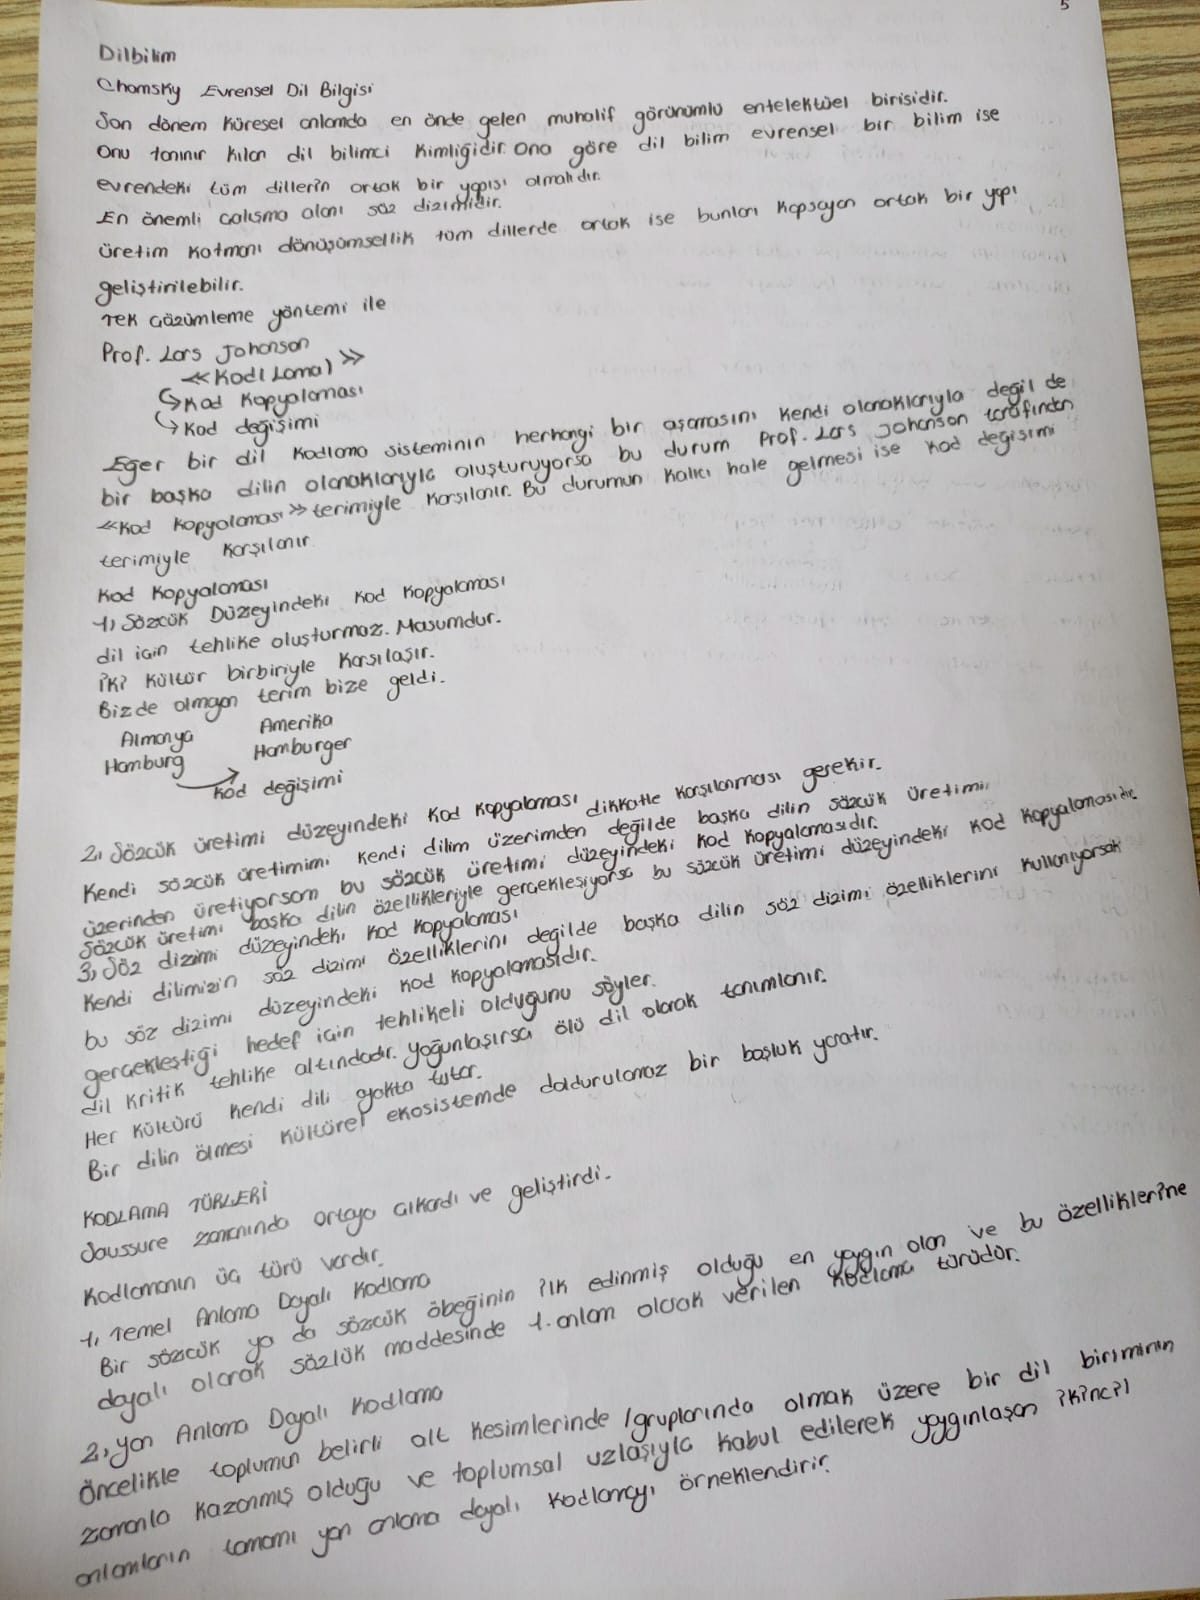 5
Dilbilim
Chomsky Evrensel Dil Bilgisi
Son dönem küresel anlamda en önde gelen muhalif görünümlü entelektüel birisidir.
Onu tanınır kılan dil bilimci kimliğidir. Ona göre dil bilim evrensel bir bilim ise
evrendeki tüm dillerin ortak bir yapısı olmalıdır.
En önemli çalışma alanı söz dizimidir.
üretim katmanı dönüşümsellik tüm dillerde ortak ise bunları kapsayan ortak bir yapı
geliştirilebilir.
Tek çözümleme yöntemi ile
Prof. Lars Johanson
«Kod(Lama)»
↳Kod Kopyalaması
↳Kod değişimi
Eğer bir dil kodlama sisteminin herhangi bir aşamasını kendi olanaklarıyla değil de
bir başka dilin olanaklarıyla oluşturuyorsa bu durum Prof. Lars Johanson tarafından
«Kod kopyalaması» terimiyle karşılanır. Bu durumun kalıcı hale gelmesi ise kod değişimi
terimiyle karşılanır
Kod kopyalaması
1) Sözcük Düzeyindeki kod kopyalaması
dil için tehlike oluşturmaz. Masumdur.
İki kültür birbiriyle karşılaşır.
Bizde olmayan terim bize geldi.
Almanya Amerika
Hamburg Hamburger
kod değişimi
2) Sözcük üretimi düzeyindeki kod kopyalaması dikkatle karşılanması gerekir.
Kendi sözcük üretimimi kendi dilim üzerimden değilde başka dilin sözcük üretimi
üzerinden üretiyorsam bu sözcük üretimi düzeyindeki kod kopyalamasıdır.
Sözcük üretimi başka dilin özellikleriyle gerçekleşiyorsa bu sözcük üretimi düzeyindeki kod kopyalamasıdır.
3) Söz dizimi düzeyindeki kod kopyalaması
Kendi dilimizin söz dizimi özelliklerini değilde başka dilin söz dizimi özelliklerini kullanıyorsak
bu söz dizimi düzeyindeki kod kopyalamasıdır.
gerçekleştiği hedef için tehlikeli olduğunu söyler.
dil kritik tehlike altındadır. Yoğunlaşırsa ölü dil olarak tanımlanır.
Her kültürü kendi dili ayakta tutar.
Bir dilin ölmesi kültürel ekosistemde doldurulamaz bir boşluk yaratır.
KODLAMA TÜRLERİ
Saussure zamanında ortaya çıkardı ve geliştirdi.
Kodlamanın üç türü vardır.
1) Temel Anlama Dayalı Kodlama
Bir sözcük ya da sözcük öbeğinin ilk edinmiş olduğu en yaygın olan ve bu özelliklerine
dayalı olarak sözlük maddesinde 1. anlam olarak verilen kodlama türüdür.
2) Yan Anlama Dayalı Kodlama
Öncelikle toplumun belirli alt kesimlerinde/gruplarında olmak üzere bir dil biriminin
zamanla kazanmış olduğu ve toplumsal uzlaşıyla kabul edilerek yaygınlaşan ikincil
anlamların tamamı yan anlama dayalı kodlamayı örneklendirir.